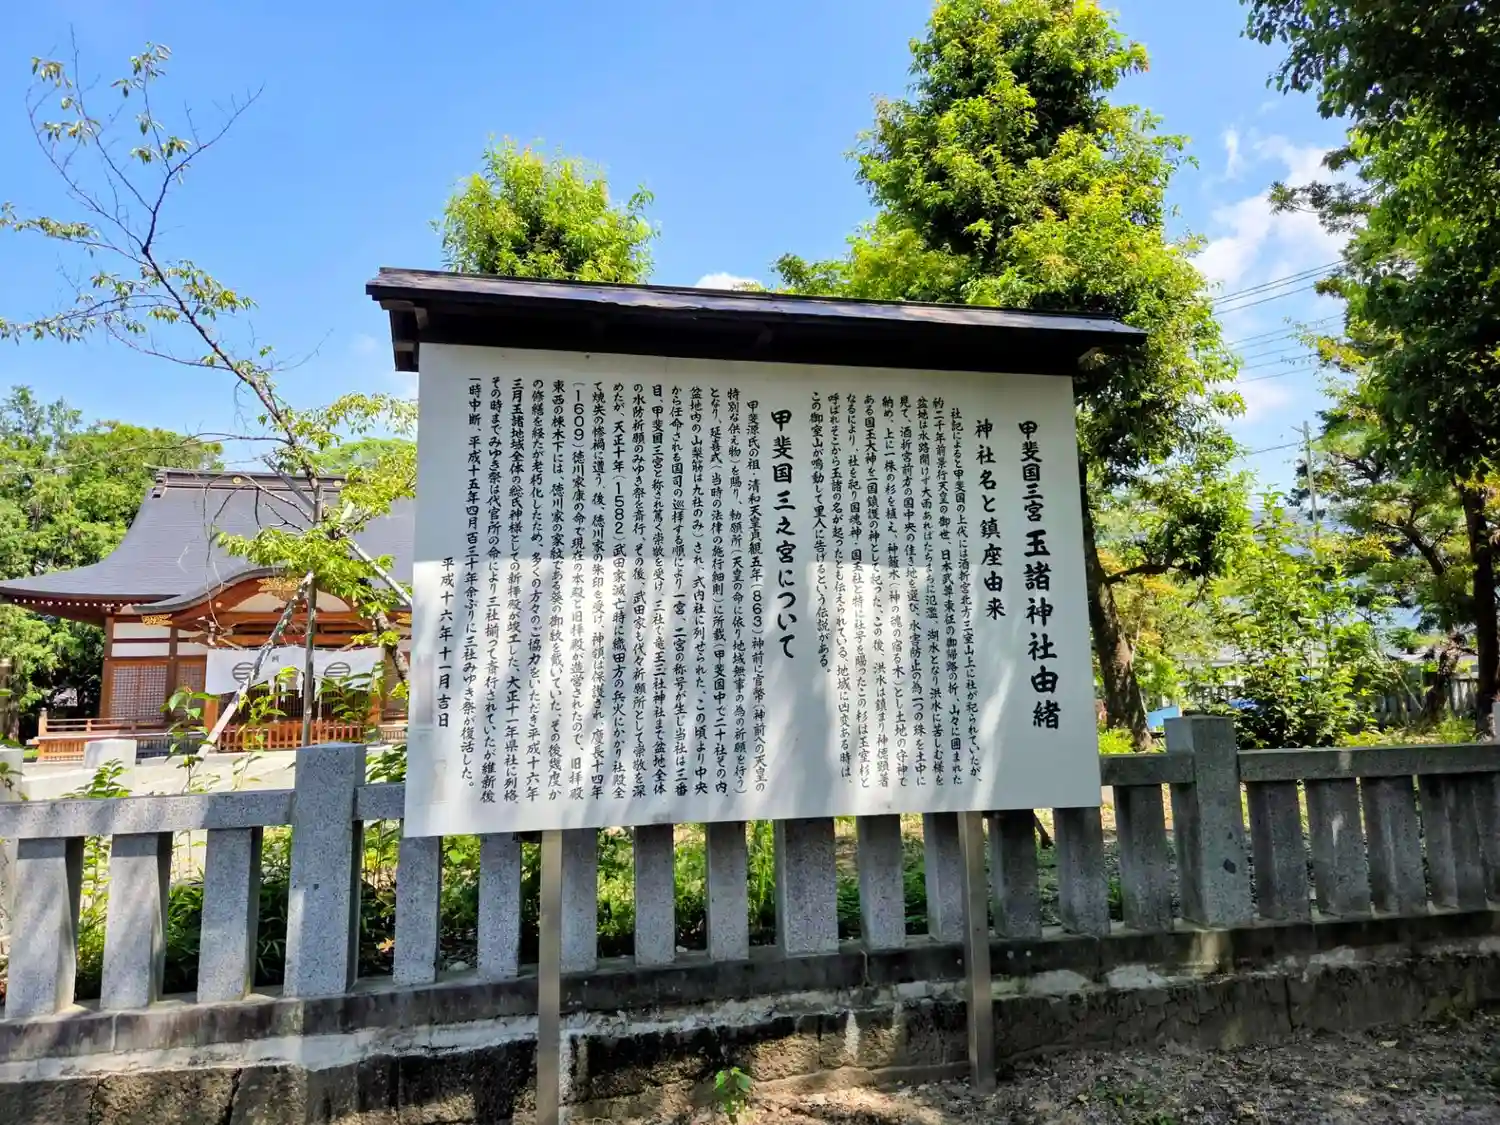 甲斐国三宮 玉諸神社由緒
神社名と鎮座由来
社記によると甲斐国の上代には酒折宮北方三室山上に社が祀られていたが、
約二千年前景行天皇の御世、日本武尊東征の御帰路の折、山々に囲まれた
盆地は水路開けず大雨あればたちまちに氾濫、湖水となり洪水に苦しむ様を
見て、酒折宮前方の国中央の佳き地を選び、水害防止の為一つの珠を土中に
納め、上に一株の杉を植え、神籬木(神の魂の宿る木)とし土地の守神で
ある国玉大神を一国鎮護の神として祀った、この後、洪水は鎮まり神徳顕著
なるにより、社を祀り国魂神・国玉社と特に社号を賜ったこの杉は玉室杉と
呼ばれそこから玉諸の名が起ったとも伝えられている、地域に凶変ある時は、
この御室山が鳴動して里人に告げるという伝説がある。
甲斐国三之宮について
甲斐源氏の祖・清和天皇貞観五年(863)神前に官幣(神前への天皇の
特別な供え物)を賜り、勅願所(天皇の命に依り地域無事の為の祈願を行う)
となり、延喜式(当時の法律の施行細則)に所載(甲斐国中で二十社その内、
盆地内の山梨筋は九社のみ)され、式内社に列せられた、この頃より中央
から任命される国司の巡拝する順により一宮、二宮の称号が生じ当社は三番
目、甲斐国三宮と称され篤く崇敬を受け、三社で竜王三社神社まで盆地全体
の水防祈願のみゆき祭を斎行、その後、武田家も代々祈願所として崇敬を深
めたが、天正十年(1582)武田家滅亡時に織田方の兵火にかかり社殿全
て焼失の惨禍に遭う、後、徳川家の朱印を受け、神領は保護され、慶長十四年
(1609)徳川家康の命で現在の本殿と旧拝殿が造営されたので、旧拝殿
東西の棟木下には、徳川家の家紋である葵の御紋を戴いていた、その後幾度か
の修繕を経たが老朽化したため、多くの方々のご協力をいただき平成十六年
三月玉諸地域全体の総氏神様としての新拝殿が竣工した、大正十一年県社に列格、
その時までみゆき祭は代官所の命により三社揃って斎行されていたが維新後
一時中断、平成十五年四月百三十年余ぶりに三社みゆき祭が復活した。
平成十六年十一月吉日